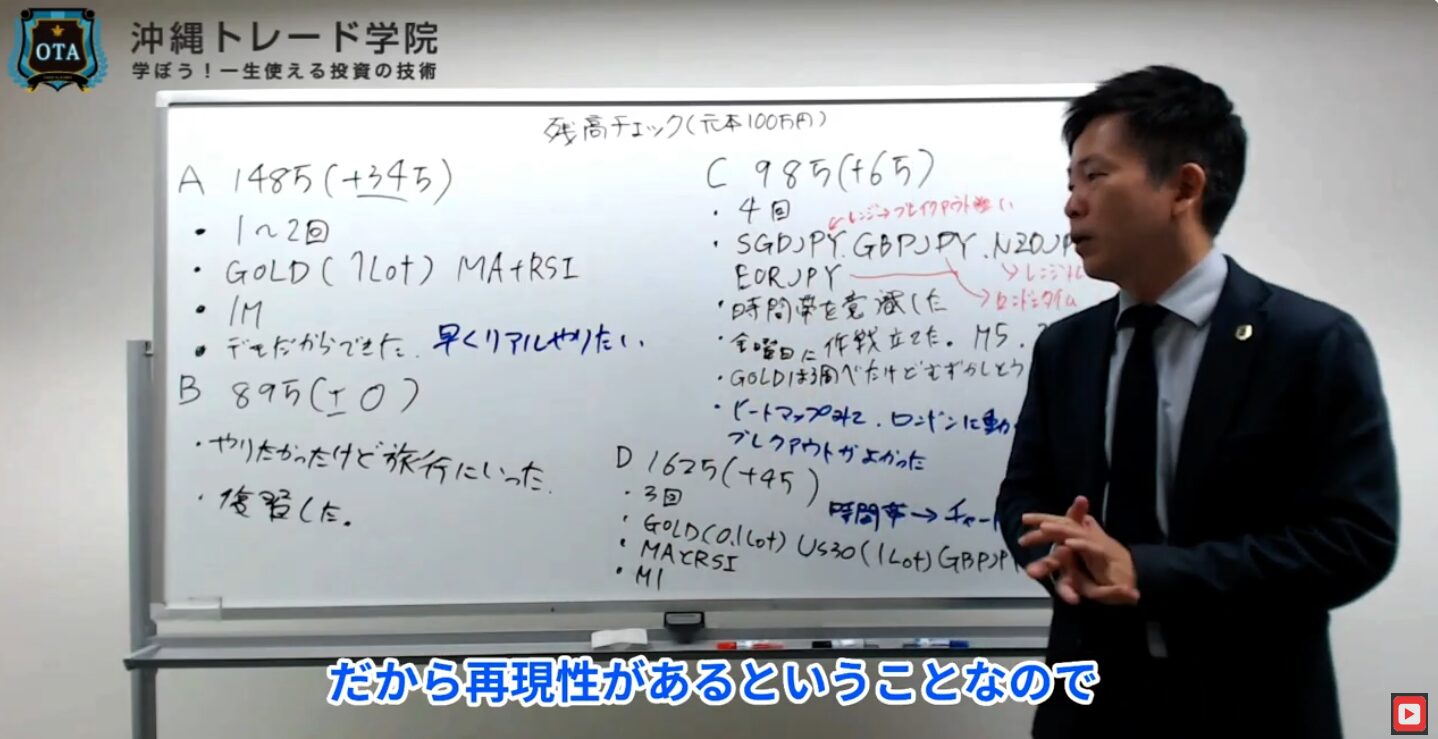 OTA
沖縄トレード学院
学ぼう！一生使える投資の技術
残高チェック(元本100万円)
A 148万(+34万)
・1〜2回
・GOLD(1Lot) MA+RSI
・1M
・デモだからできた. 早くリアルやりたい
B 89万(±0)
・やりたかったけど旅行にいった.
・復習した。
C 98万(+6万)
・4回
レンジ→ブレイクアウト
・SGDJPY.GBPJPY.NZDJP
EURJPY
レンジ
ロンドンタイム
・時間帯を意識した
・金曜日に作戦立てた。M5.
・GOLDは調べたけどむずかしそう
・ヒートマップみて、ロンドンに動
ブレクアウトがよかった
D 162万(+4万)
・3回
時間帯→チャート
・GOLD(0.1Lot) US30(1Lot)GBPJPY
・MAとRSI
・M1
だから再現性があるということなので